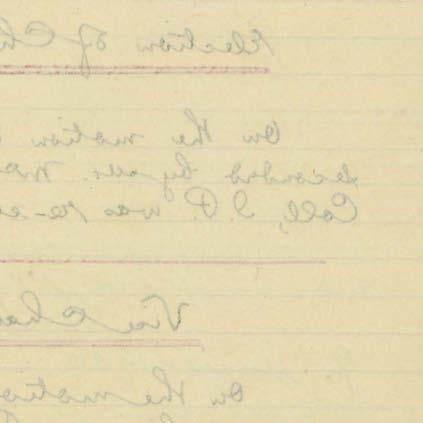 Election of Ch
On the motion
seconded by Mr.
Coll, J.P. was re-e
Vice Cha
On the motio